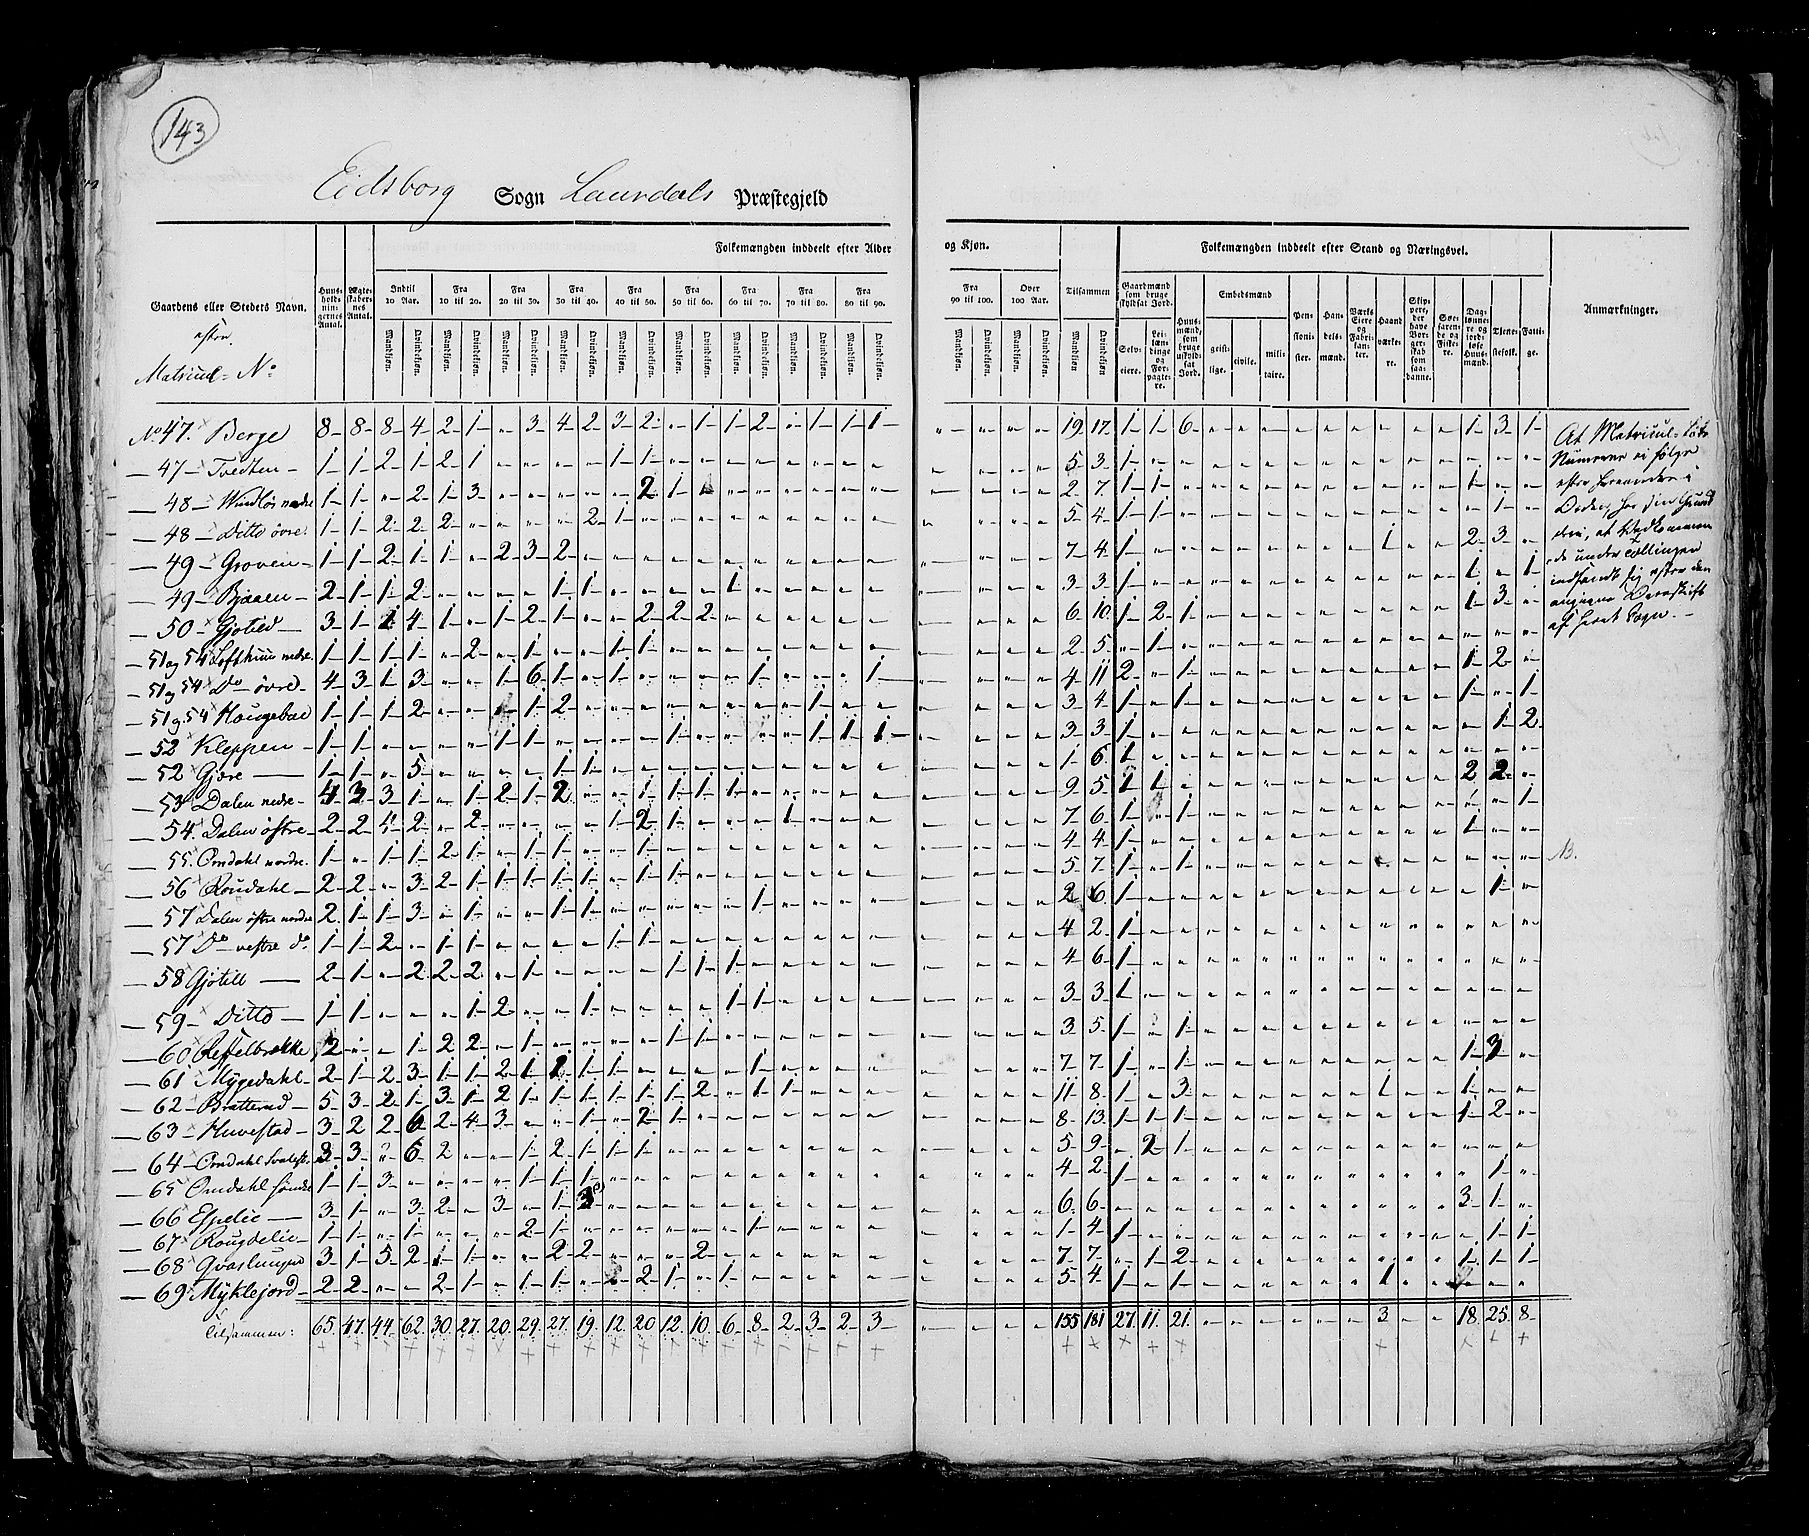 143
Eidsborg Sogn Laurdals Præstegjeld
Gaardens eller Stedets Navn.
efter
Matricul = No
Huusholdningernes Antal.
Ægteskabernes Antal.
Folkemængden inddeelt efter Alder og Kjøn.
Indtil 10 Aar. Fra 10 til 20. Fra 20 til 30. Fra 30 til 40. Fra 40 til 50. Fra 50 til 60. Fra 60 til 70. Fra 70 til 80. Fra 80 til 90. Fra 90 til 100. Over 100 Aar. Tilsammen
Mandkjøn. Qvindekjøn.
Folkemængden inddeelt efter Stand og Næringsvei.
Gaardmænd som bruge skyldsat Jord.
Selveiere. Leilændinge og Forpagtere.
Huusmænd, som bruge uskyldsat Jord.
Embedsmænd
geistlige. civile. militaire.
Pensionister. Handelsmænd. Værks Eiere og Fabrikanter. Haandværkere. Skippere, der have Borgerskab som saadanne. Søefarende og Fiskere. Daglønnere og jordløse Huusmænd. Tjenestefolk. Fattige.
Anmærkninger.
No 47. Berge 8 8 8 4 2 1 " 3 4 2 3 2 " 1 1 2 " 1 1 1 " " " " 19 17 1 1 6 " " " " " " " " " 1 3 1
47 Tvedten 1 1 2 1 2 1 " " " " 1 1 " " " " " " " " " " " " 5 3 1
48 Windlös nedre 1 1 " 2 1 3 " " " " " 2 1 " " " " " " " 2 7 1 1
48 Ditto øvre 1 1 2 2 2 " " " " 2 1 " " " " " " " " " 5 4 1 1
49 Groven 1 1 2 1 1 " 2 3 2 " " " " " " " " " " " 7 4 1
49 Bjaaen 2 1 1 2 " " " " 1 1 " " " " 1 " " " " " 3 3 1
50 Gjotild 3 1 1 4 1 " 1 2 1 " " 2 2 2 " " " " " " 6 10 1 2 1
51 og 54 Lofthuus nedre 1 1 1 1 " 2 " 1 " " 1 1 " " " " " " " " 2 5 " 1
51 g 54 Do øvre 4 3 1 3 " " 1 6 1 " 1 " " " " 1 " " " 1 4 11 2 " 1
51 g. 54 Hougebae 1 1 1 2 " " " 1 2 " " " " " " " " 1 " " 3 4 1 " 1
52 Kleppen 1 1 " " " " 1 1 " " " " 1 " " " " 1 1 1 3 3 1
52 Gjøre 1 1 " 5 " " " " 1 1 " " " " " " " " " " 1 6 1
53 Dalen nedre 4 3 3 1 " 1 2 1 2 " " 1 1 1 1 " " " " " 9 5 1 1
54. Dalen østre 2 2 4 2 " 2 " " " " 1 2 1 " " " 1 " " " 7 6 1 " 1
55 Omdahl nordre 1 " 1 1 2 1 " 1 1 " " 1 " " " " " " " " 4 4 1
56 Roudahl 2 2 " 3 2 1 1 1 1 1 " 1 " " " " " " " " 5 7 1 " 1
57 Dalen østre nordre 2 1 1 3 " 1 " " 1 1 " " " " " 1 " " " " 2 6 1
57 Do vestre do 1 1 2 " 1 1 " " " " 1 1 " " " " " " " " 4 2 1
58 Gjøtill 2 1 " 2 2 2 " 1 " " " " 1 1 1 " " " " " 4 6 1
59 Ditto 1 1 " " " 1 2 " " 1 " " " " 1 1 " " " " 3 3 1
60 Reffelbrekke 2 " " 1 2 2 " 1 " " " " 1 1 " " " " " " 3 5 1 " 1
61 Mygedahl 2 1 2 3 1 1 2 1 1 1 1 " " " " 1 " " " " 7 7 1 " 1
62 Bratterud 5 3 2 1 3 1 2 1 1 1 1 1 1 2 " 1 1 " " " 11 8 1 " 3
63 Huvestad 3 2 2 6 2 4 3 " " 1 " 2 1 " " " " " " " 8 13 1 1 1
64 Omdahl Svalest. 3 3 " 6 2 " " 1 2 1 1 1 " " " " " " " " 5 9 " 2 1
65 Omdahl søndre 1 1 3 " " " " " 1 1 1 " " " " " " " " " 4 2 1
66 Espelie 3 1 " 3 2 " 3 " 1 3 " " " " " " " " " " 6 6 " " " 3 1
67 Rougdelie 1 1 " 1 " " " 2 1 " " " " " " 1 " " " " 1 4 1 " " " 1 1
68 Qvaslaugne 3 1 5 2 1 1 " " 2 2 " " " 2 " " " " " " 7 7 " 1 2 " 1 1 1
69 Myklejord 2 2 " " 2 1 " 1 1 " 2 1 " 1 " " " " " " 5 4 1 " 1 1
Tilsammen: 65 47 44 62 30 27 20 29 27 19 12 20 12 10 6 8 2 3 2 3 " " " " 155 181 27 11 21 " " " " " " 3 " " 18 25 8
At Matricul = Løbe
Numerne ei følge
efter hverandre i
Orden, har sin Grund
deri, at Vedkommen
de under Tællingen
indfandt sig efter den
angivne Dereskrift
af hvert Sogn.
NB.